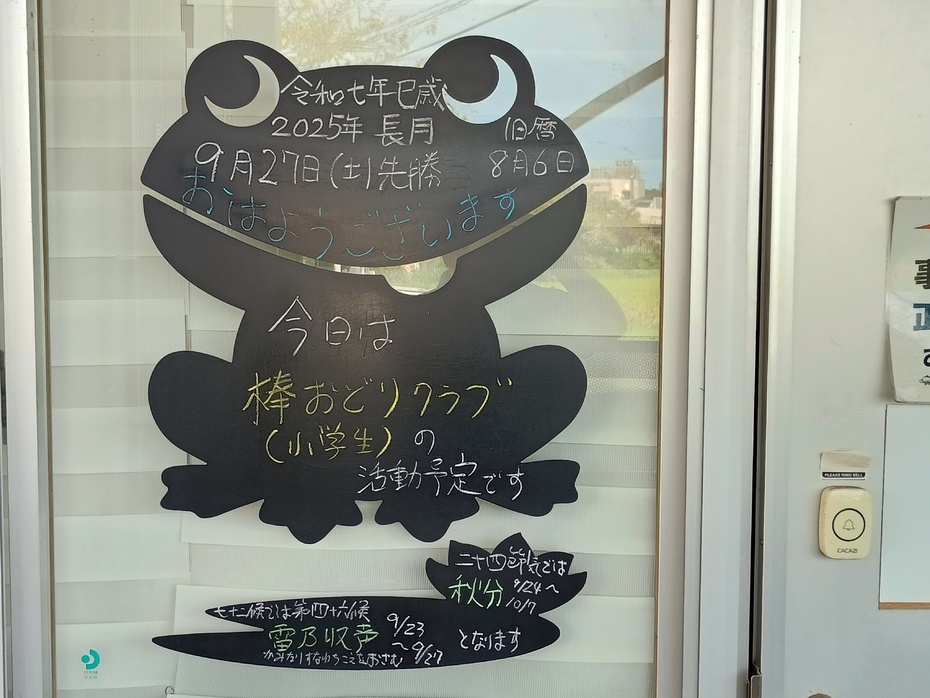 令和七年巳歳
2025年 長月
旧暦
9月27日(土)先勝
8月6日
おはようございます
今日は
棒おどりクラブ
(小学生)の
活動予定です
二十四節気では
秋分 9/24～
10/7
七十二候では第四十六候
雷乃収声 9/23
～9/27
かみなりすなわちこえをおさむ
となります
PLEASE RING BELL
CACAZI